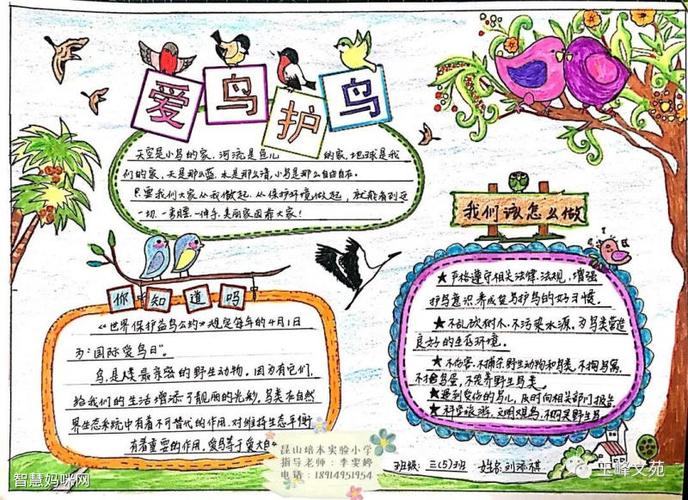 爱鸟护鸟
天空是小鸟的家，河流是鱼儿 的家，地球是我
们的家，天是那么蓝，水是那么清，小鸟是那么自由自在。
只要我们大家从我做起，从保护环境做起，就能看到这
一切。
我们该怎么做
★严格遵守相关法律、法规，增强
护鸟意识，养成爱鸟护鸟的好习惯。
★不乱砍树木，不污染水源，为鸟类营造
良好的生存环境。
★不伤害、不捕杀野生动物和鸟类，不掏鸟窝，
不捡鸟蛋，不贩养野生鸟类。
★遇到受伤的鸟儿，及时向相关部门报告
★科学旅游，文明观鸟，不惊吓野生鸟
你知道吗
《世界保护益鸟公约》规定每年的4月1日
为"国际爱鸟日"。
鸟，是人类最亲密的野生动物。因为有它们，
给我们的生活增添了靓丽的光彩，鸟类在自然
界生态系统中有着不可替代的作用，对维持生态平衡
有着重要的作用，爱鸟等于爱大自
昆山培本实验小学
指导老师：李雯婷
电话：18914951954
班级：三(5)班 姓名：刘添祺
智慧妈咪网
玉峰文苑